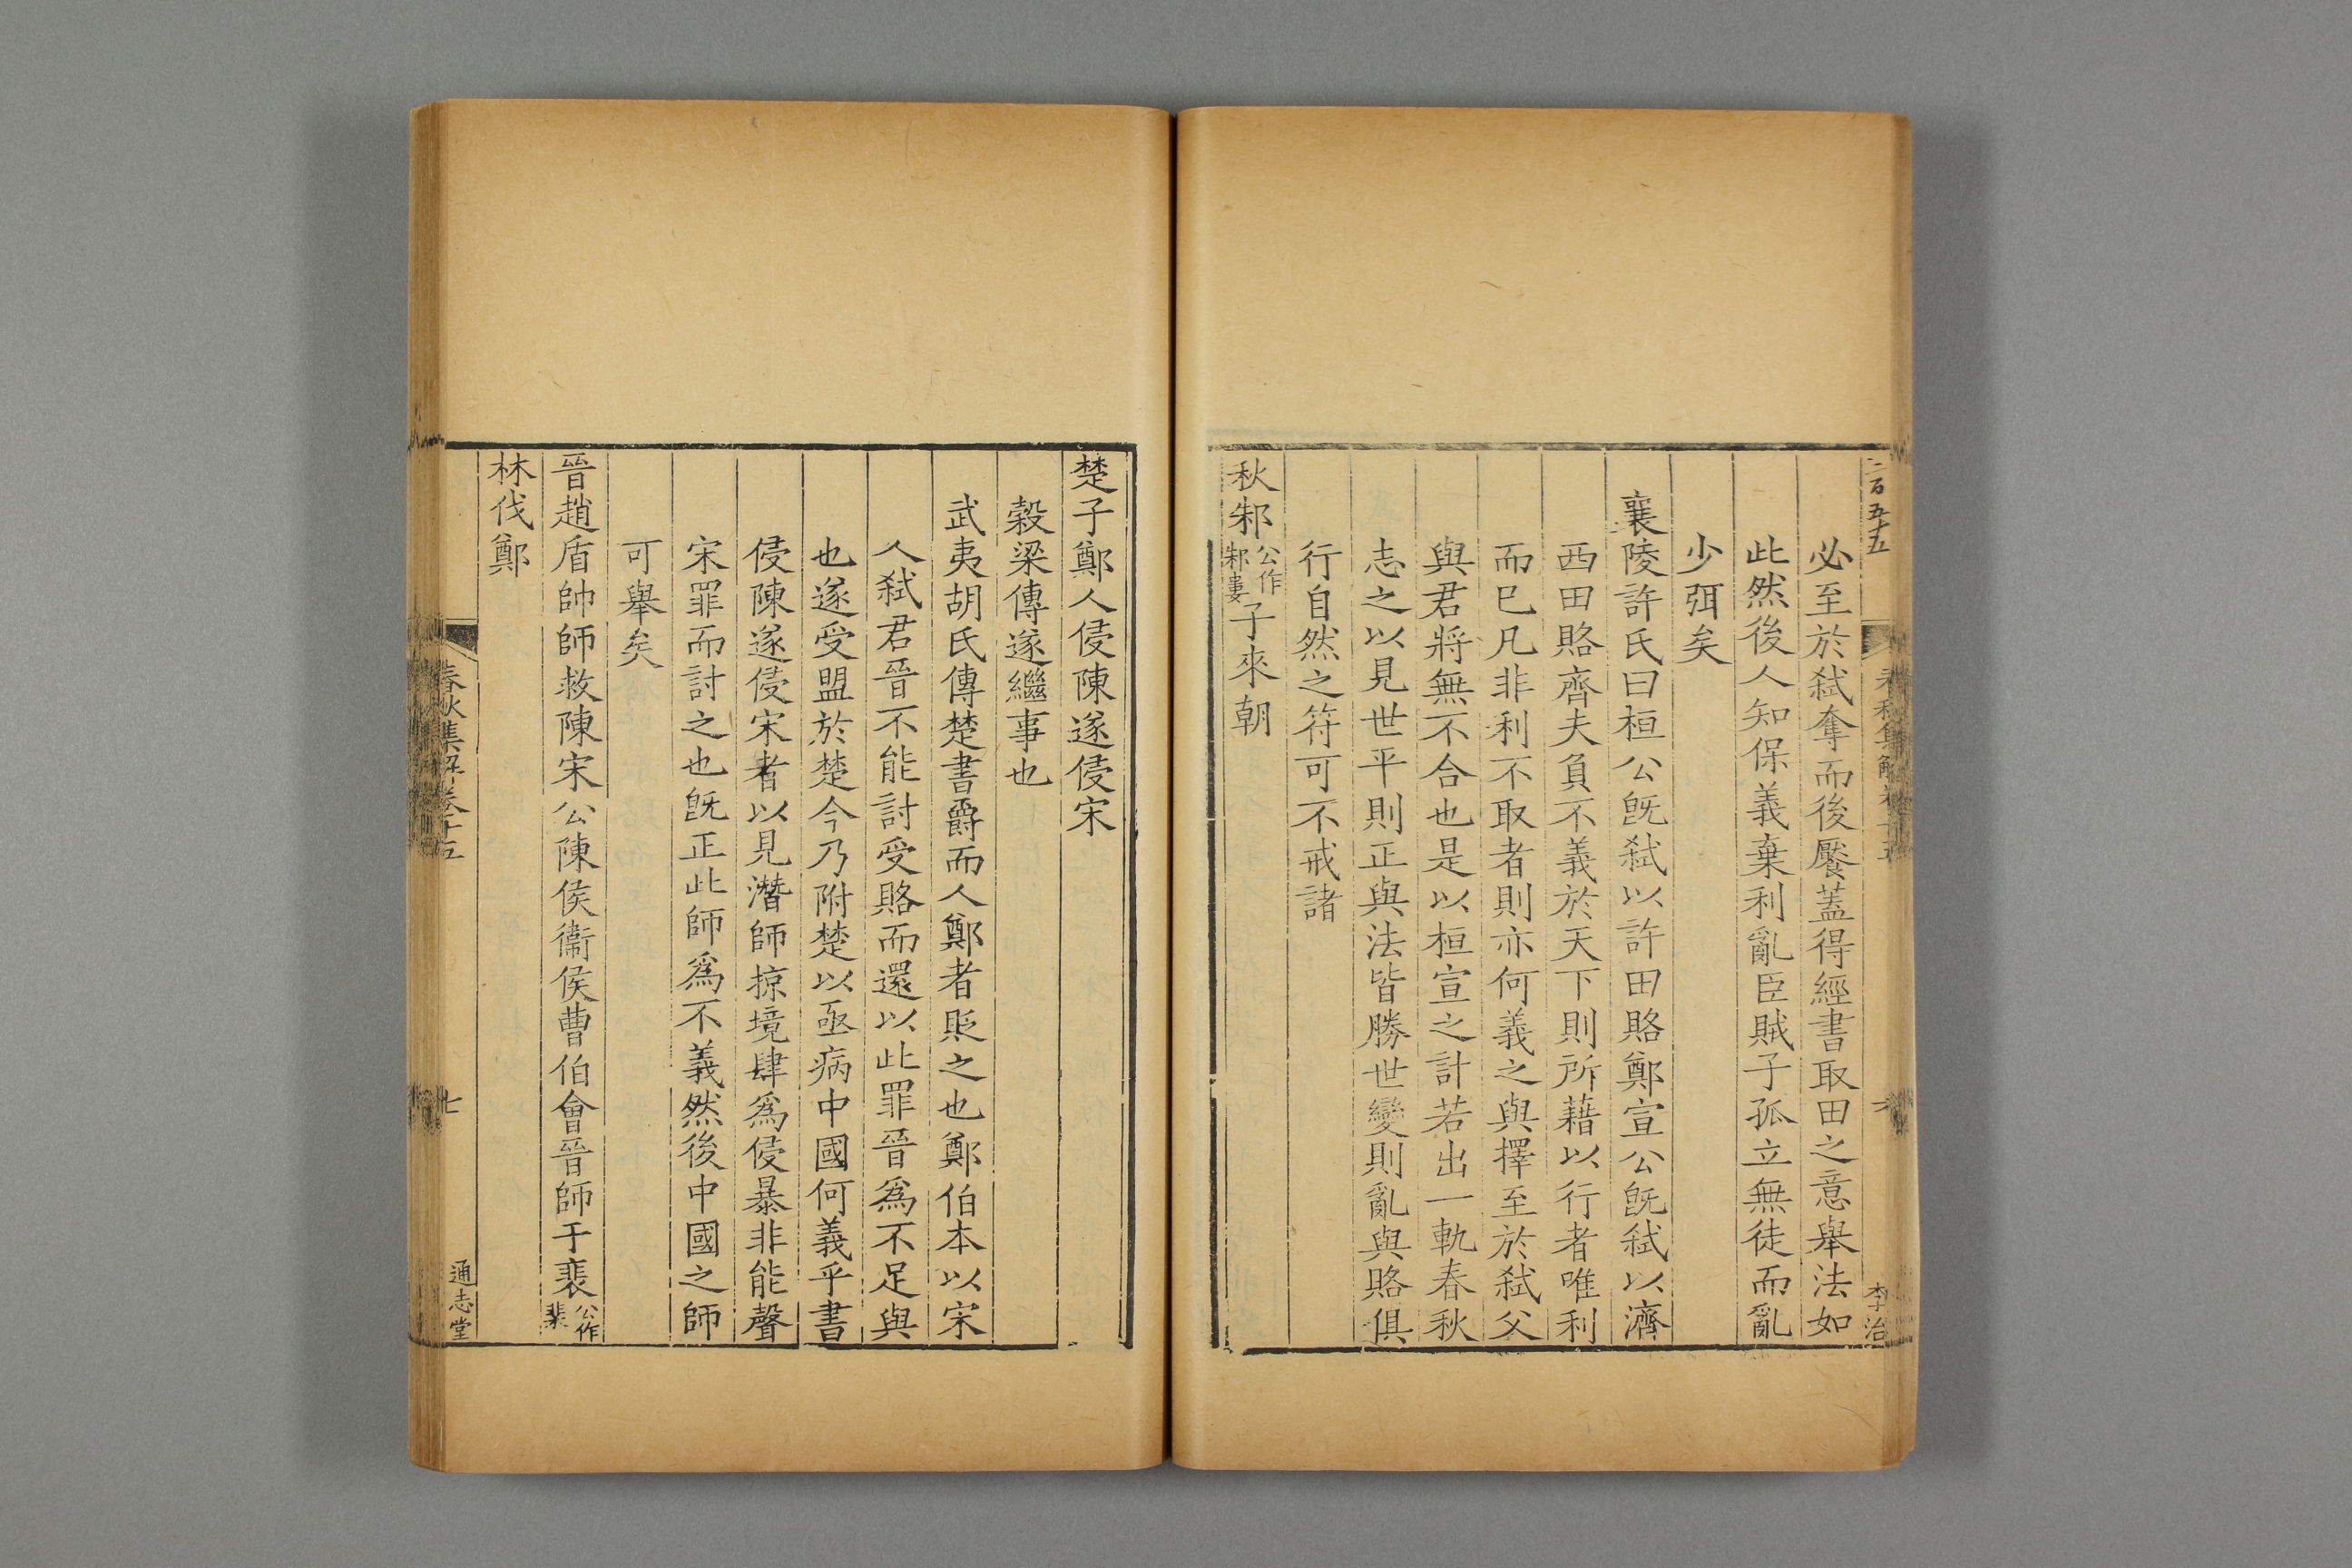 二百五十五
春秋集解卷十五
六
李治
必至於弑奪而後饜蓋得經書取田之意舉法如
此然後人知保義棄利亂臣賊子孤立無徒而亂
少弭矣
襄陵許氏曰桓公旣弑以許田賂鄭宣公旣弑以濟
西田賂齊夫負不義於天下則所藉以行者唯利
而巳凡非利不取者則亦何義之與擇至於弑父
與君將無不合也是以桓宣之計若出一軌春秋
志之以見世平則正與法皆勝世變則亂與賂俱
行自然之符可不戒諸
秋邾公作邾婁子來朝
楚子鄭人侵陳遂侵宋
榖梁傳遂繼事也
武夷胡氏傳楚書爵而人鄭者貶之也鄭伯本以宋
人弑君晉不能討受賂而還以此罪晉爲不足與
也遂受盟於楚今乃附楚以亟病中國何義乎書
侵陳遂侵宋者以見潛師掠境肆爲侵暴非能聲
宋罪而討之也旣正此師爲不義然後中國之師
可舉矣
晉趙盾帥師救陳宋公陳侯衞侯曹伯會晉師于裴公作斐
林伐鄭
春秋集解卷十五
七
通志堂